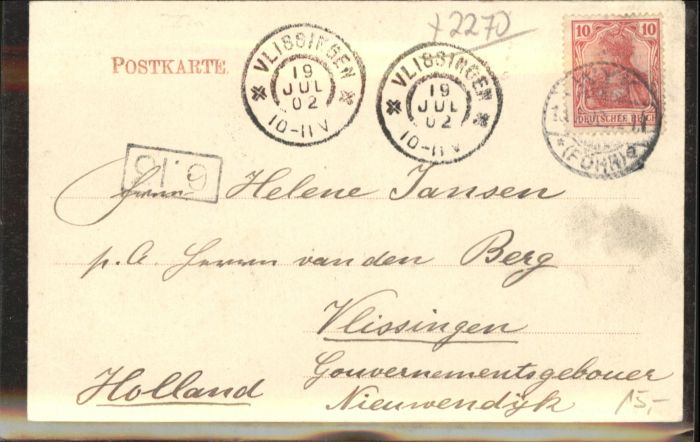 +2270
POSTKARTE
VLISSINGEN
19
JUL
02
10-11V
VLISSINGEN
19
JUL
02
10-11V
10 10
DEUTSCHES REICH
(FÖHR)
6.15
Helene Jansen
p. A. Herrn van den Berg
Vlissingen
Holland
Gouvernementsgebouer
Nieuwendijk
15,-